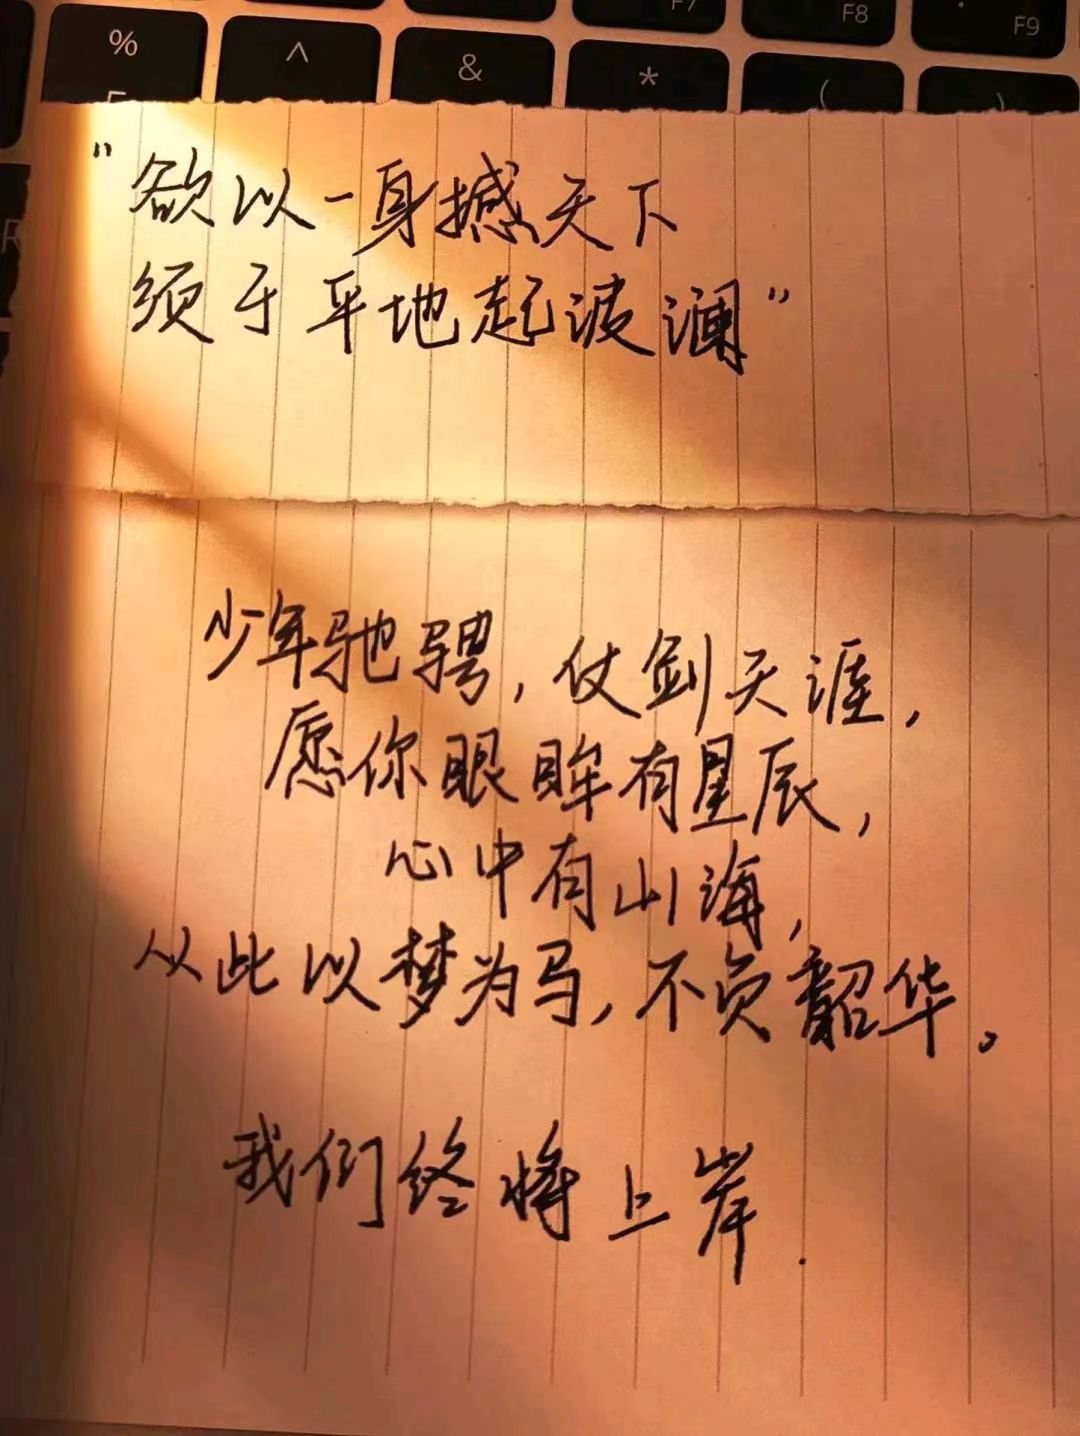 F7 F8 F9
% ^ & * ( )
R
"欲以一身撼天下
须于平地起波澜"
少年驰骋,仗剑天涯,
愿你眼眸有星辰,
心中有山海,
从此以梦为马,不负韶华。
我们终将上岸.